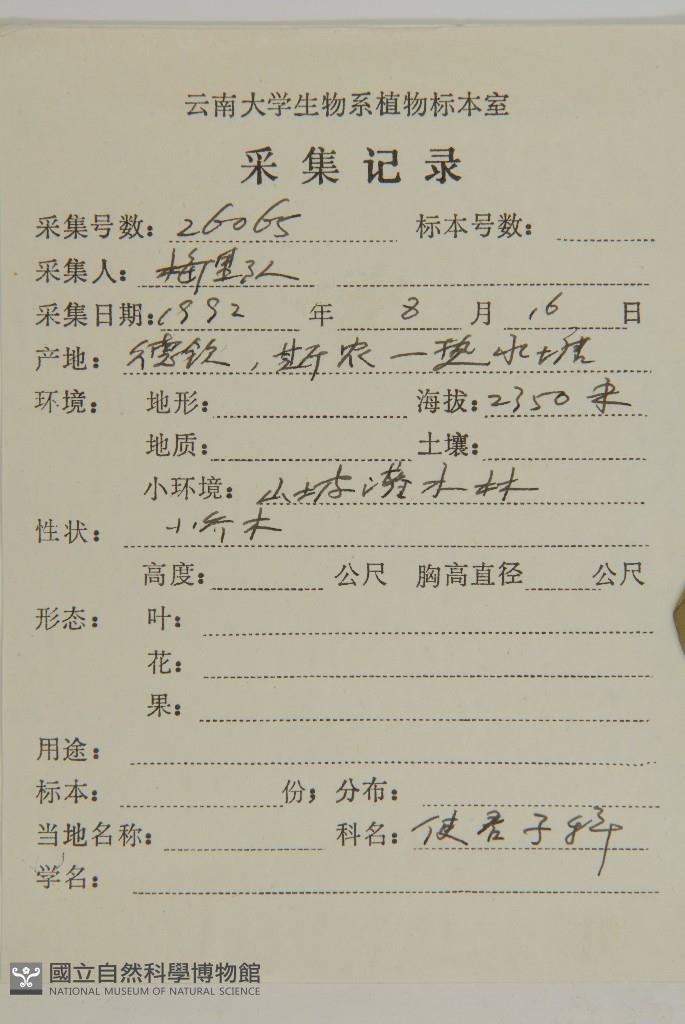 云南大学生物系植物标本室
采集记录
采集号数：26065 标本号数：
采集人：梅里队
采集日期：1992 年 8 月 16 日
产地：德钦，斯农一热水塘
环境： 地形： 海拔：2350米
地质： 土壤：
小环境：山坡灌木林
性状： 小乔木
高度： 公尺 胸高直径 公尺
形态： 叶：
花：
果：
用途：
标本： 份；分布：
当地名称： 科名：使君子科
学名：
國立自然科學博物館
NATIONAL MUSEUM OF NATURAL SCIENCE